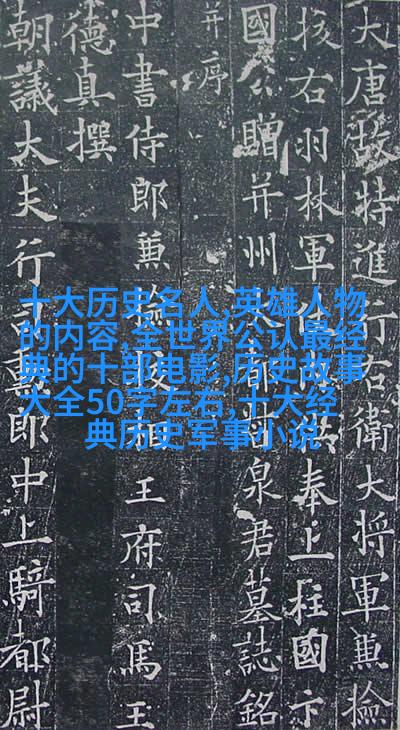 大唐故特進行右衛大將軍兼檢
校右羽林軍仗奉上柱國卞
國公贈并州泉君墓誌銘
并序
中書侍郎兼檢校相王府司馬王
德真撰
朝議大夫行司勳郎中上騎都尉
十大历史名人,英雄人物
的内容,全世界公认最经
典的十部电影,历史故事
大全50字左右,十大经
典历史军事小说